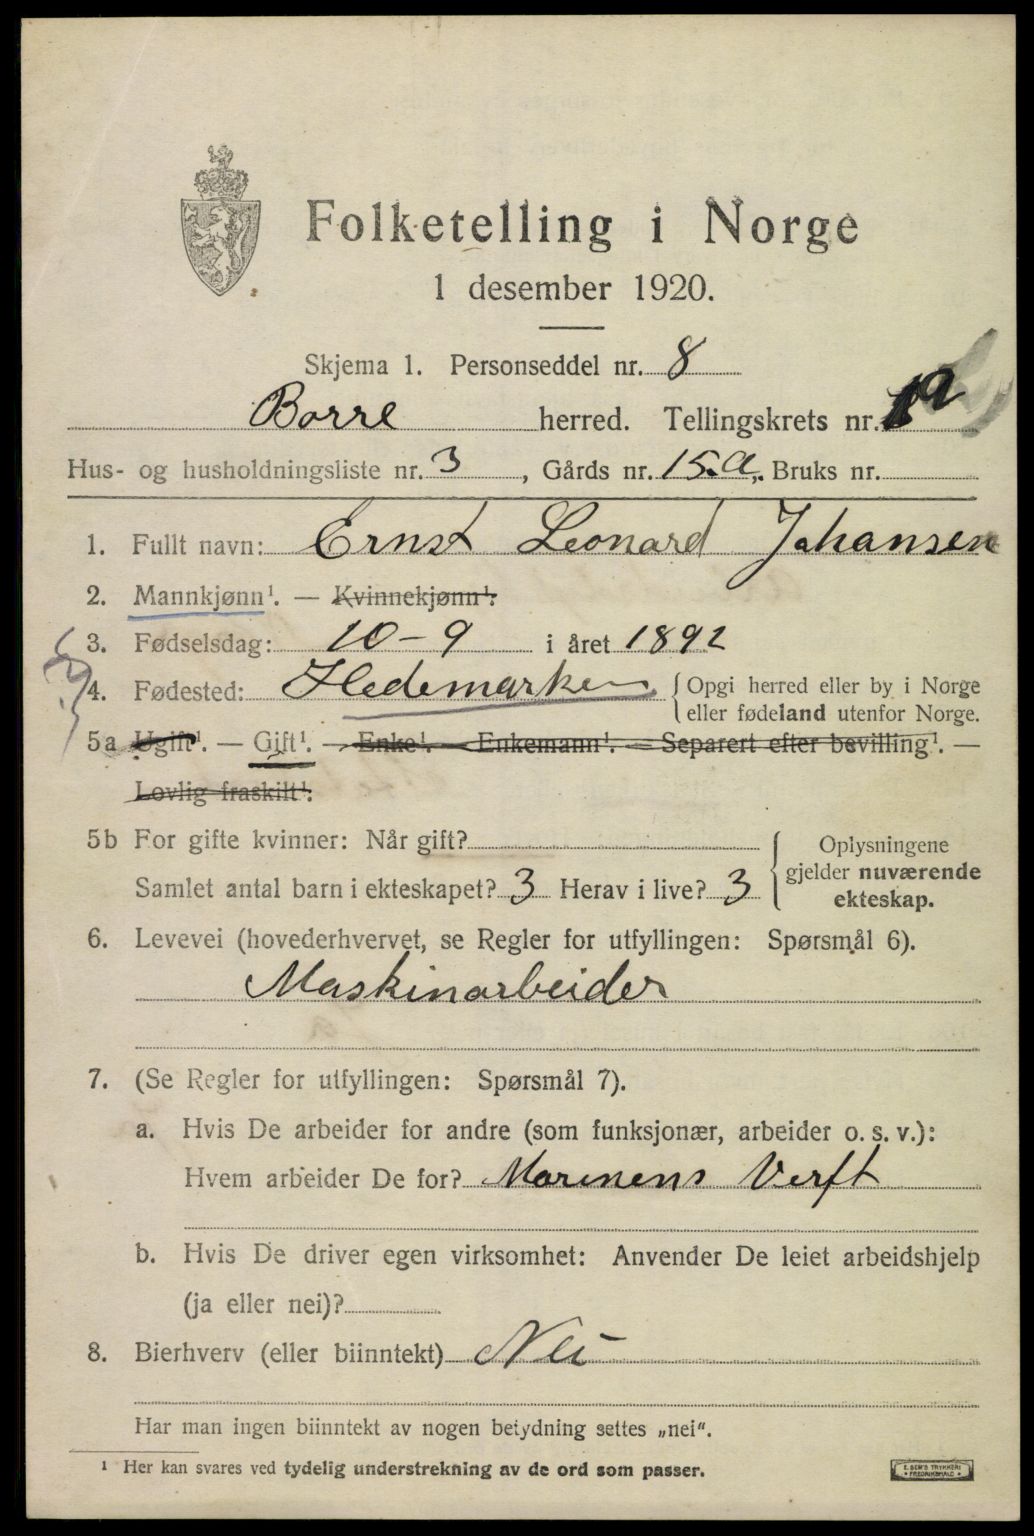 Folketelling i Norge
1 desember 1920.
Skjema 1. Personseddel nr. 8
Borre herred. Tellingskrets nr.
Hus- og husholdningsliste nr. 3, Gårds nr. 15.a, Bruks nr.
1. Fullt navn: Ernst Leonard Johansen
2. Mannkjønn¹. — Kvinnekjønn¹.
3. Fødselsdag: 10-9 i året 1892
4. Fødested: Hedemarken { Opgi herred eller by i Norge
eller fødeland utenfor Norge.
5a Ugift¹. — Gift¹. — Enke¹. — Enkemann¹. — Separert efter bevilling¹. —
Lovlig fraskilt¹.
5b For gifte kvinner: Når gift?
Samlet antal barn i ekteskapet? 3 Herav i live? 3
{ Oplysningene
gjelder nuværende
ekteskap.
6. Levevei (hovederhvervet, se Regler for utfyllingen: Spørsmål 6).
Maskinarbeider
7. (Se Regler for utfyllingen: Spørsmål 7).
a. Hvis De arbeider for andre (som funksjonær, arbeider o. s. v.):
Hvem arbeider De for? Marinens Verft
b. Hvis De driver egen virksomhet: Anvender De leiet arbeidshjelp
(ja eller nei)?
8. Bierhverv (eller biinntekt) Nei
Har man ingen biinntekt av nogen betydning settes „nei".
¹ Her kan svares ved tydelig understrekning av de ord som passer.
E. SEM'S TRYKKERI
FREDRIKSHALD